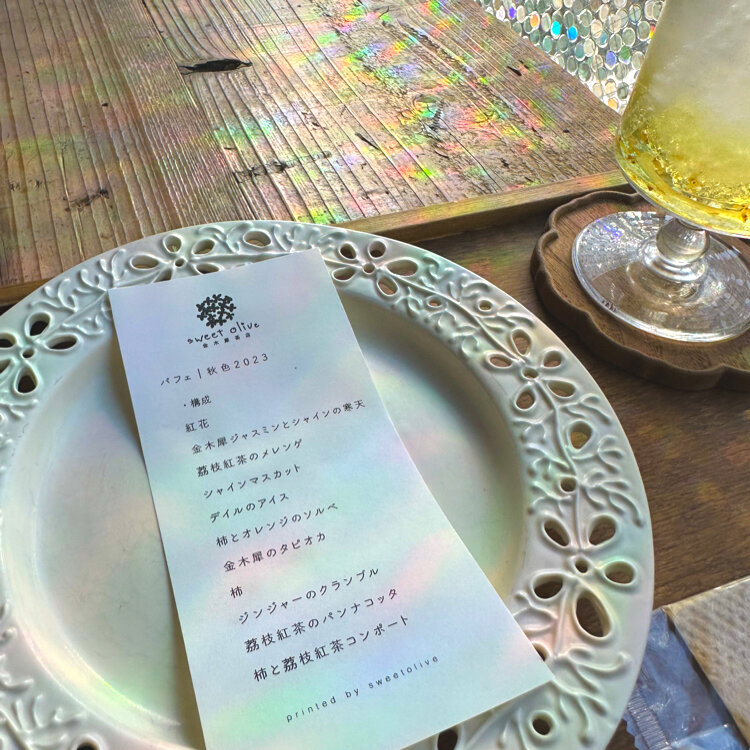 sweet olive
金木犀茶店
パフェ | 秋色2023
・構成
紅花
金木犀ジャスミンとシャインの寒天
荔枝紅茶のメレンゲ
シャインマスカット
デイルのアイス
柿とオレンジのソルベ
金木犀のタピオカ
柿
ジンジャーのクランブル
荔枝紅茶のパンナコッタ
柿と荔枝紅茶コンポート
printed by sweetolive